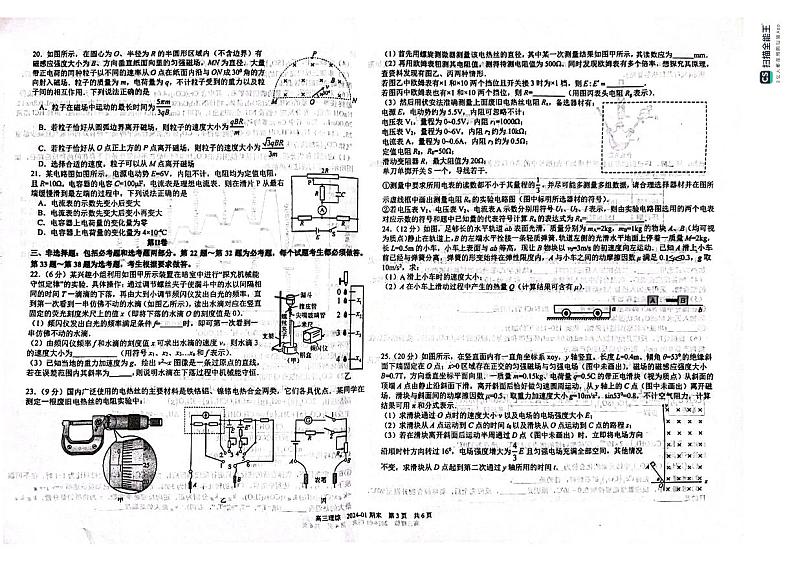 20. 如图所示，在圆心为O、半径为R的半圆形区域内（不含边界）有
磁感应强度大小为B、方向垂直纸面向里的匀强磁场，MN为直径。大量
带正电荷的同种粒子以不同的速率从O点在纸面内沿与ON成30°角的方
向射入磁场。粒子的质量为m、电荷量为q，不计粒子受到的重力以及粒
子间的相互作用。下列说法正确的是
A．粒子在磁场中运动的最长时间为5πm/3qB
B．若粒子恰好从圆弧边界离开磁场，则粒子的速度大小为qBR/m
C．若粒子恰好从O点正上方的P点离开磁场，则粒子的速度大小为√3qBR/3m
D．选择合适的速度，粒子可以从M点离开磁场
21．某电路图如图所示，电源电动势E=6V，内阻不计，电阻均为定值电阻，
且R=10Ω，电容器的电容C=100μF，电流表是理想电流表。则在滑片P从最右
端缓慢滑到最左端的过程中，下列说法正确的是
A．电流表的示数先变小后变大
B．电流表的示数先变大后变小再变大
C．电容器上电荷量的变化量为零
D．电容器上电荷量的变化量为4×10⁻⁴C
第II卷
三、非选择题：包括必考题和选考题两部分。第22题～第32题为必考题，每个试题考生都必须做答。
第33题～第38题为选考题，考生根据要求做答。
22．（6分）某兴趣小组利用如图甲所示装置在暗室中进行“探究机械能
守恒定律”的实验，具体操作：通过调节螺丝夹子使漏斗中的水以间隔相
同的时间T一滴滴的下落，再由大到小调节频闪仪发出白光的频率，直
到第一次看到一串仿佛不动的水滴（如图乙所示），读出水滴对应在竖直
固定的荧光刻度米尺上的值x（即将下落的水滴O的刻度值是0）。
（1）频闪仪发出白光的频率满足条件f=____时，即可第一次看到一
串仿佛不动的水滴。
（2）由频闪仪频率f和水滴的刻度值x可求出水滴的速度v，则水滴3
的速度大小为________（用符号x₁、x₂、x₃…x₆和f表示）。
（3）已知当地的重力加速度为g，绘出v²-x图像是一条过原点的直线，
若在误差范围内其斜率为____，则说明水滴在下落过程中机械能守恒。
23．（9分）国内广泛使用的电热丝的主要材料是铁铬铝、镍铬电热合金两类，它们各具优点，某同学在
测定一报废旧电热丝的电阻实验中：
漏斗
橡皮管
尖嘴玻璃管
米尺
频闪仪
铝盒
支架
甲
乙
甲
乙
丙
（1）首先用螺旋测微器测量该电热丝的直径，其中某一次测量结果如图甲所示，其读数应为____mm。
（2）再用欧姆表粗测其电阻值，测得待测电阻值为500Ω，同时发现欧姆表有多个倍率，想探究其原理，
查资料发现有图乙、丙两种情形．
若图乙中欧姆表有×1和×10两个挡位且开关接3时为×1档，则E:E′=____
若图丙中欧姆表也有×1和×10两个挡位，则R=____（用图丙表头电阻Rg表示）．
（3）然后用伏安法准确测量上面废旧电热丝电阻Rx，备选器材有：
电源E，电动势约为5.5V，内阻可忽略不计；
电压表V₁，量程为0~0.5V，内阻r₁=1000Ω；
电压表V₂，量程为0~6V，内阻r₂约为10kΩ；
电流表A，量程为0~0.6A，内阻r₃约为0.5Ω；
定值电阻R₀，R₀=50Ω；
滑动变阻器R，最大阻值为20Ω；
单刀单掷开关S一个，导线若干。
①测量中要求所用电表的读数都不小于其量程的1/3，并尽可能多测量多组数据，请合理选择器材并在图所
示虚线框中画出测量电阻Rx的实验电路图（图中标明所选器材的符号）．
②若电压表V₁、电压表V₂、电流表A示数分别用符号U₁、U₂、I表示，则由实验电路图选用的两个电表
对应示数的符号和题中已知量的代表符号计算Rx的表达式为Rx=____
24．（12分）如图，足够长的水平轨道ab表面光滑，质量分别为mA=2kg、mB=1kg的物块A、B（均可视
为质点）静止在轨道上，B的左端水平拴接一条轻质弹簧，轨道左侧的光滑水平地面上停着一质量M=2kg、
长L=0.5m的小车，小车上表面与ab等高。
10m/s²，求：
（1）A滑上小车时的速度大小；
（2）A在小车上滑动过程中产生的热量Q（计算结果可含有μ）．
A
B
25．（20分）如图所示，在竖直面内有一直角坐标系xoy，y轴竖直，长度L=0.4m、倾角θ=53°的绝缘斜
面下端固定在O点；x>0区域存在正交的匀强磁场与匀强电场（图中未画出），磁场的磁感应强度大小
B=0.7T，方向垂直坐标平面向里。一质量m=0.15kg、电荷量q=0.5C的带正电滑块（视为质点）从斜面的
顶端A点由静止沿斜面下滑，离开斜面后恰好做匀速圆周运动，从y轴上的C点（图中未画出）离开磁
场。滑块与斜面间的动摩擦因数μ=0.5，取重力加速度大小g=10m/s²，sin53°=0.8，不计空气阻力，计算
结果可用π和分式表示。
（1）求滑块通过O点时的速度大小v以及电场的电场强度大小E；
（2）求滑块从A点运动到C点的时间t₀以及滑块从O点运动到C点的路程s；
（3）若在滑块离开斜面后运动半周通过D点（图中未画出）时，立即将电场方向
不变，求滑块从D点起到第二次通过y轴所用的时间t．
高三理综 2024-01期末 第3页 共6页
CS 扫描全能王